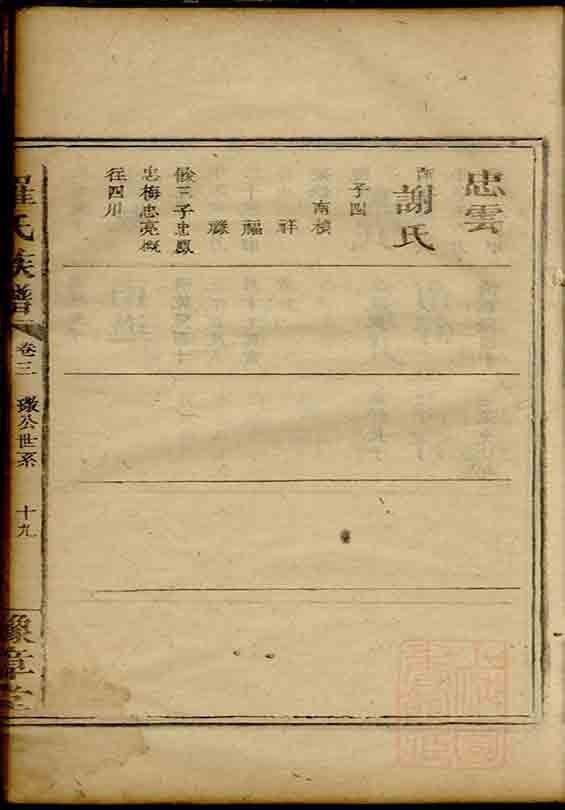 忠雲
謝氏
子四
南楨
祥
福
祿
餘三子忠鳳
忠梅忠亮概
往四川
羅氏族譜
卷三
璥公世系
十九
豫章堂